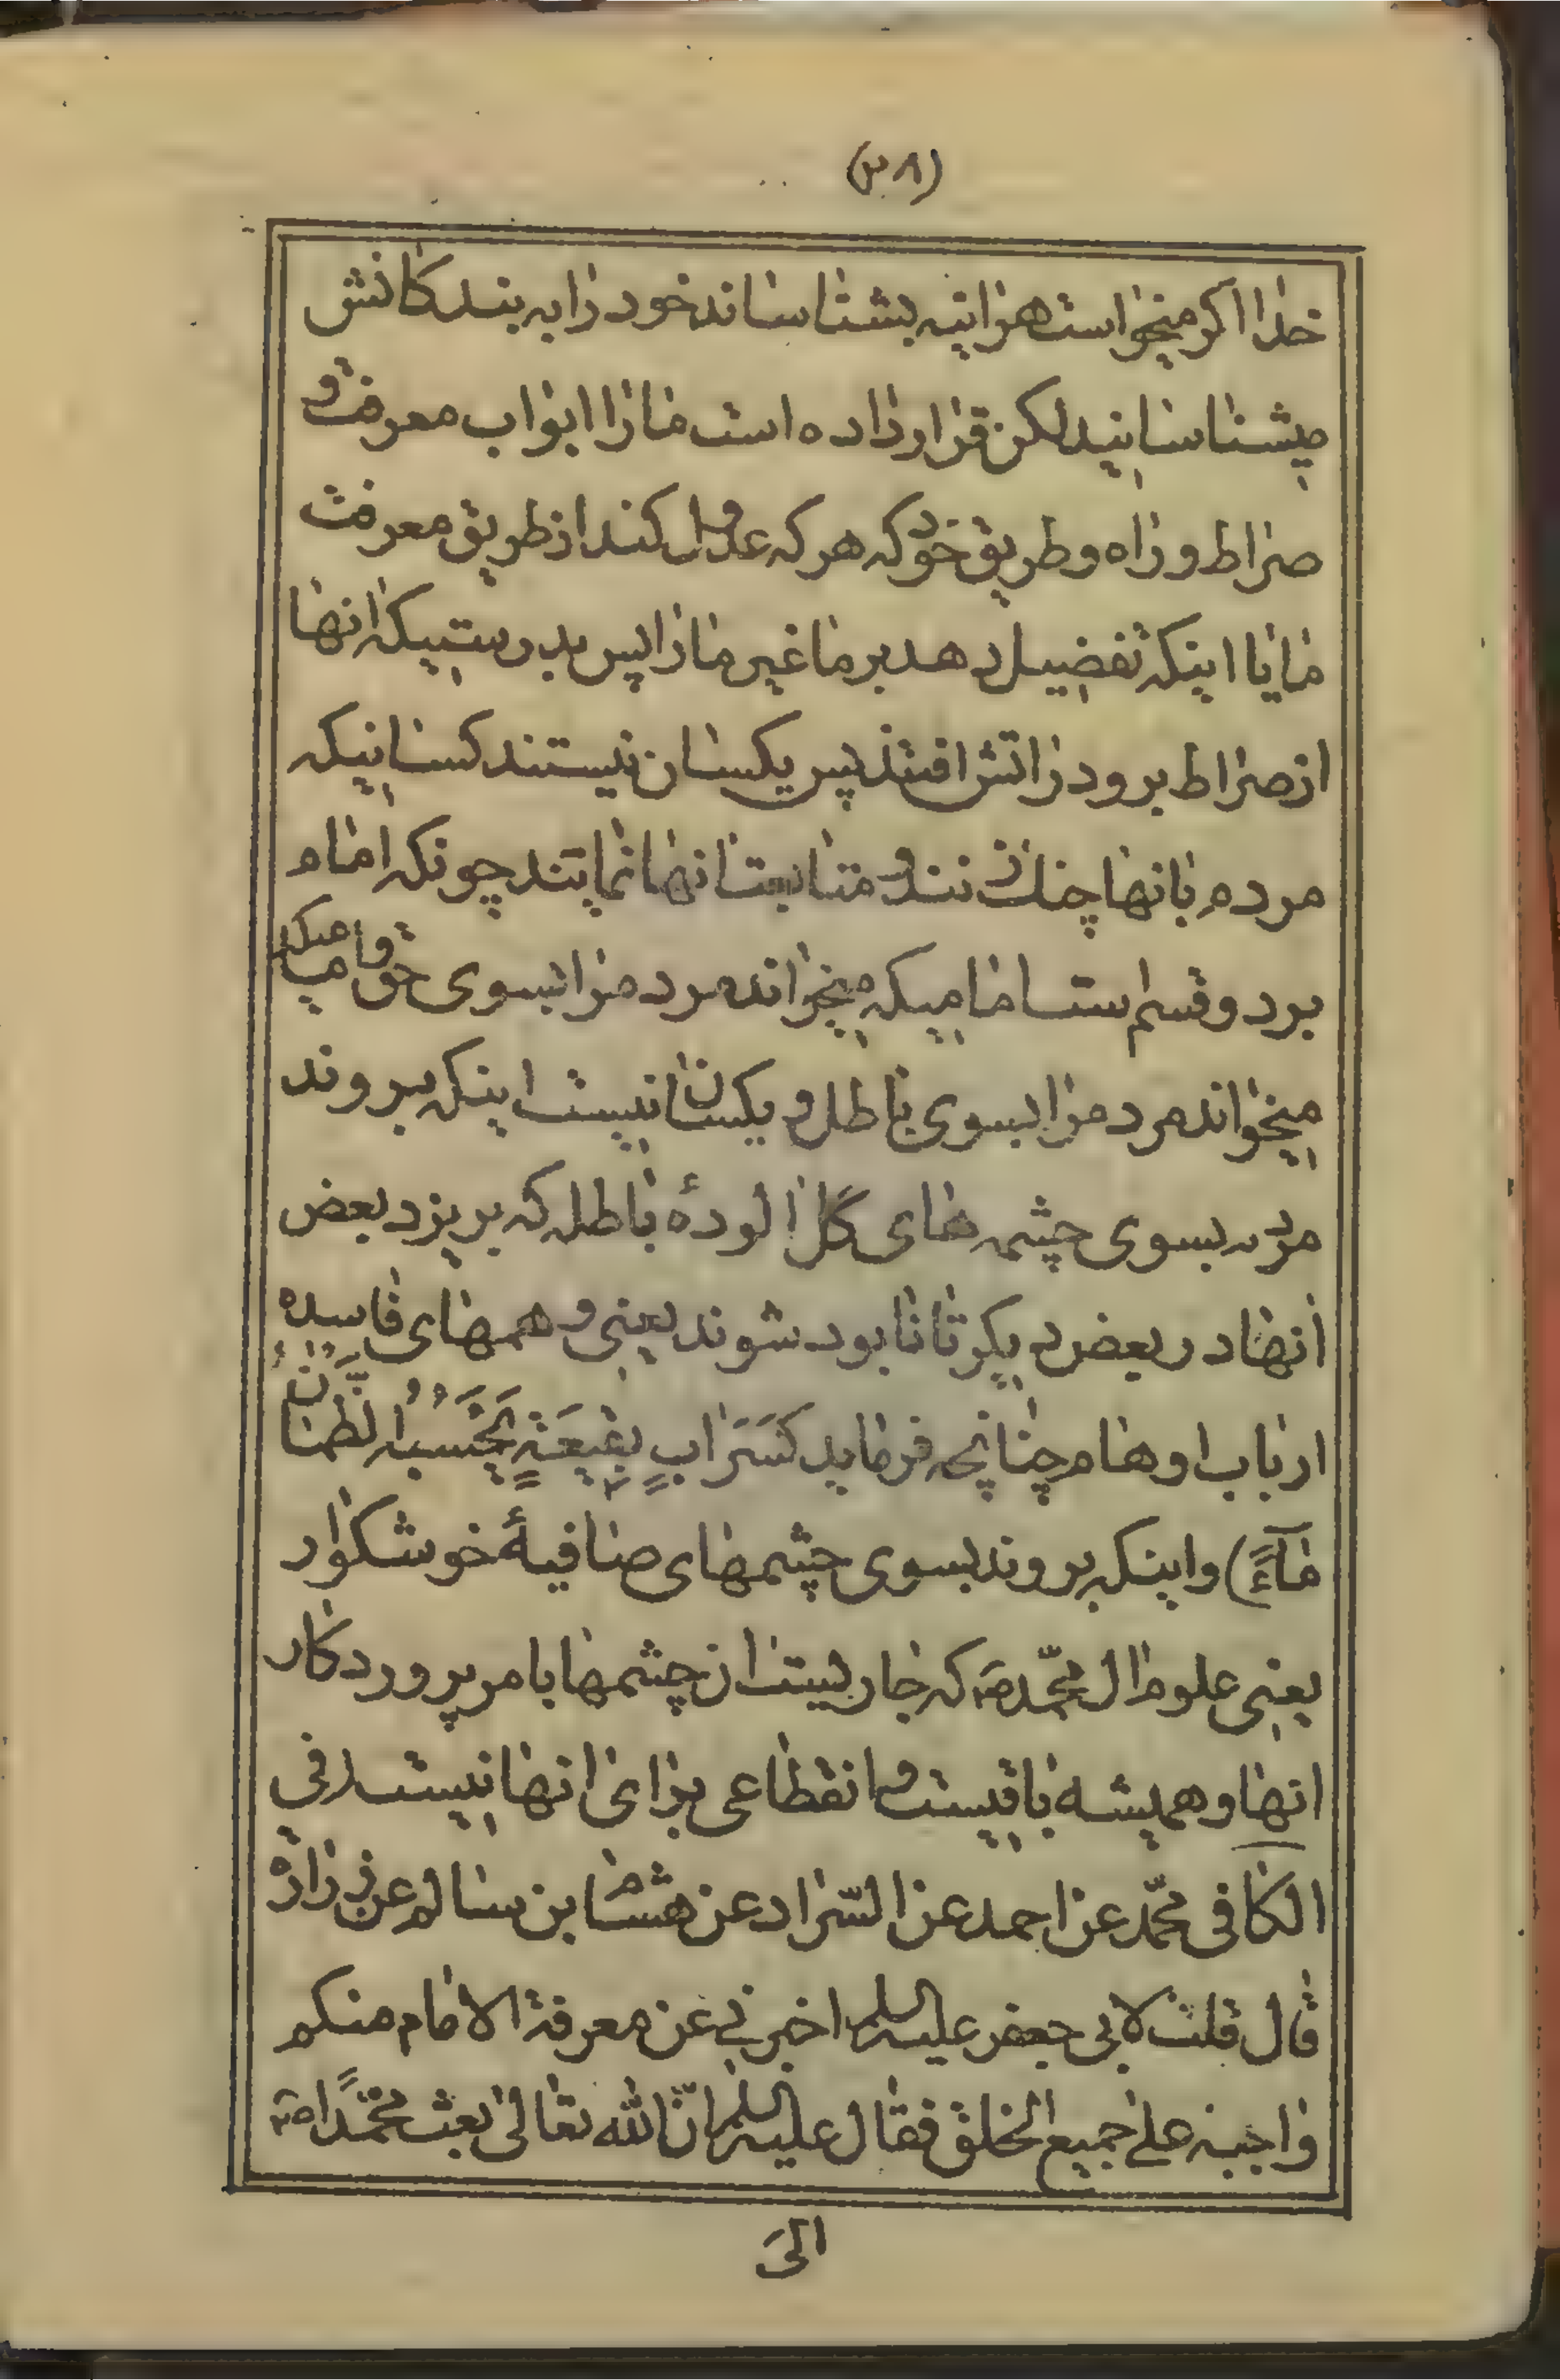 خدا اگر میخواست هراینه بشناساند خود را به بندگانش
میشناسانید لکن قرار داده است ما را ابواب معرفت و
صراط و راه و طریق خود که هر که عدول کند از طریق معرفت
ما یا اینکه تفضیل دهد بر ما غیر ما را پس بدرستیکه انها
از صراط برو در اتش افتند پس یکسان نیستند کسانیکه
مردم بانها چنك زنند و متابعت انها نمایند چونکه امام
بر دو قسم است امامیکه میخواند مردم را بسوی حق و امامیکه
میخواند مردم را بسوی باطل و یکسان نیست اینکه بروند
مردم بسوی چشمه های گل الودهٔ باطله که بریزد بعض
انها در بعض دیگر تا نابود شوند یعنی وهمهای فاسده
ارباب اوهام چنانچه فرماید كَسَرَابٍ بِقِيعَةٍ يَحْسَبُهُ الظَّمْآنُ
مَآءً) و اینکه بروند بسوی چشمهای صافیهٔ خوشگوار
یعنی علوم ال محمّد ص که جاریست از چشمها بامر پروردگار
انها و همیشه باقیست و انقطاعی برای انها نیست در فی
الکافی محمّد عن احمد عن السّراد عن هشام بن سالم عن زراره
قال قلت لابی جعفر علیه السلم اخبرنی عن معرفة الامام منکم
واجبة علی جمیع الخلق فقال علیه السلم انّ الله تعالی بعث محمّدًا ص
الیَ